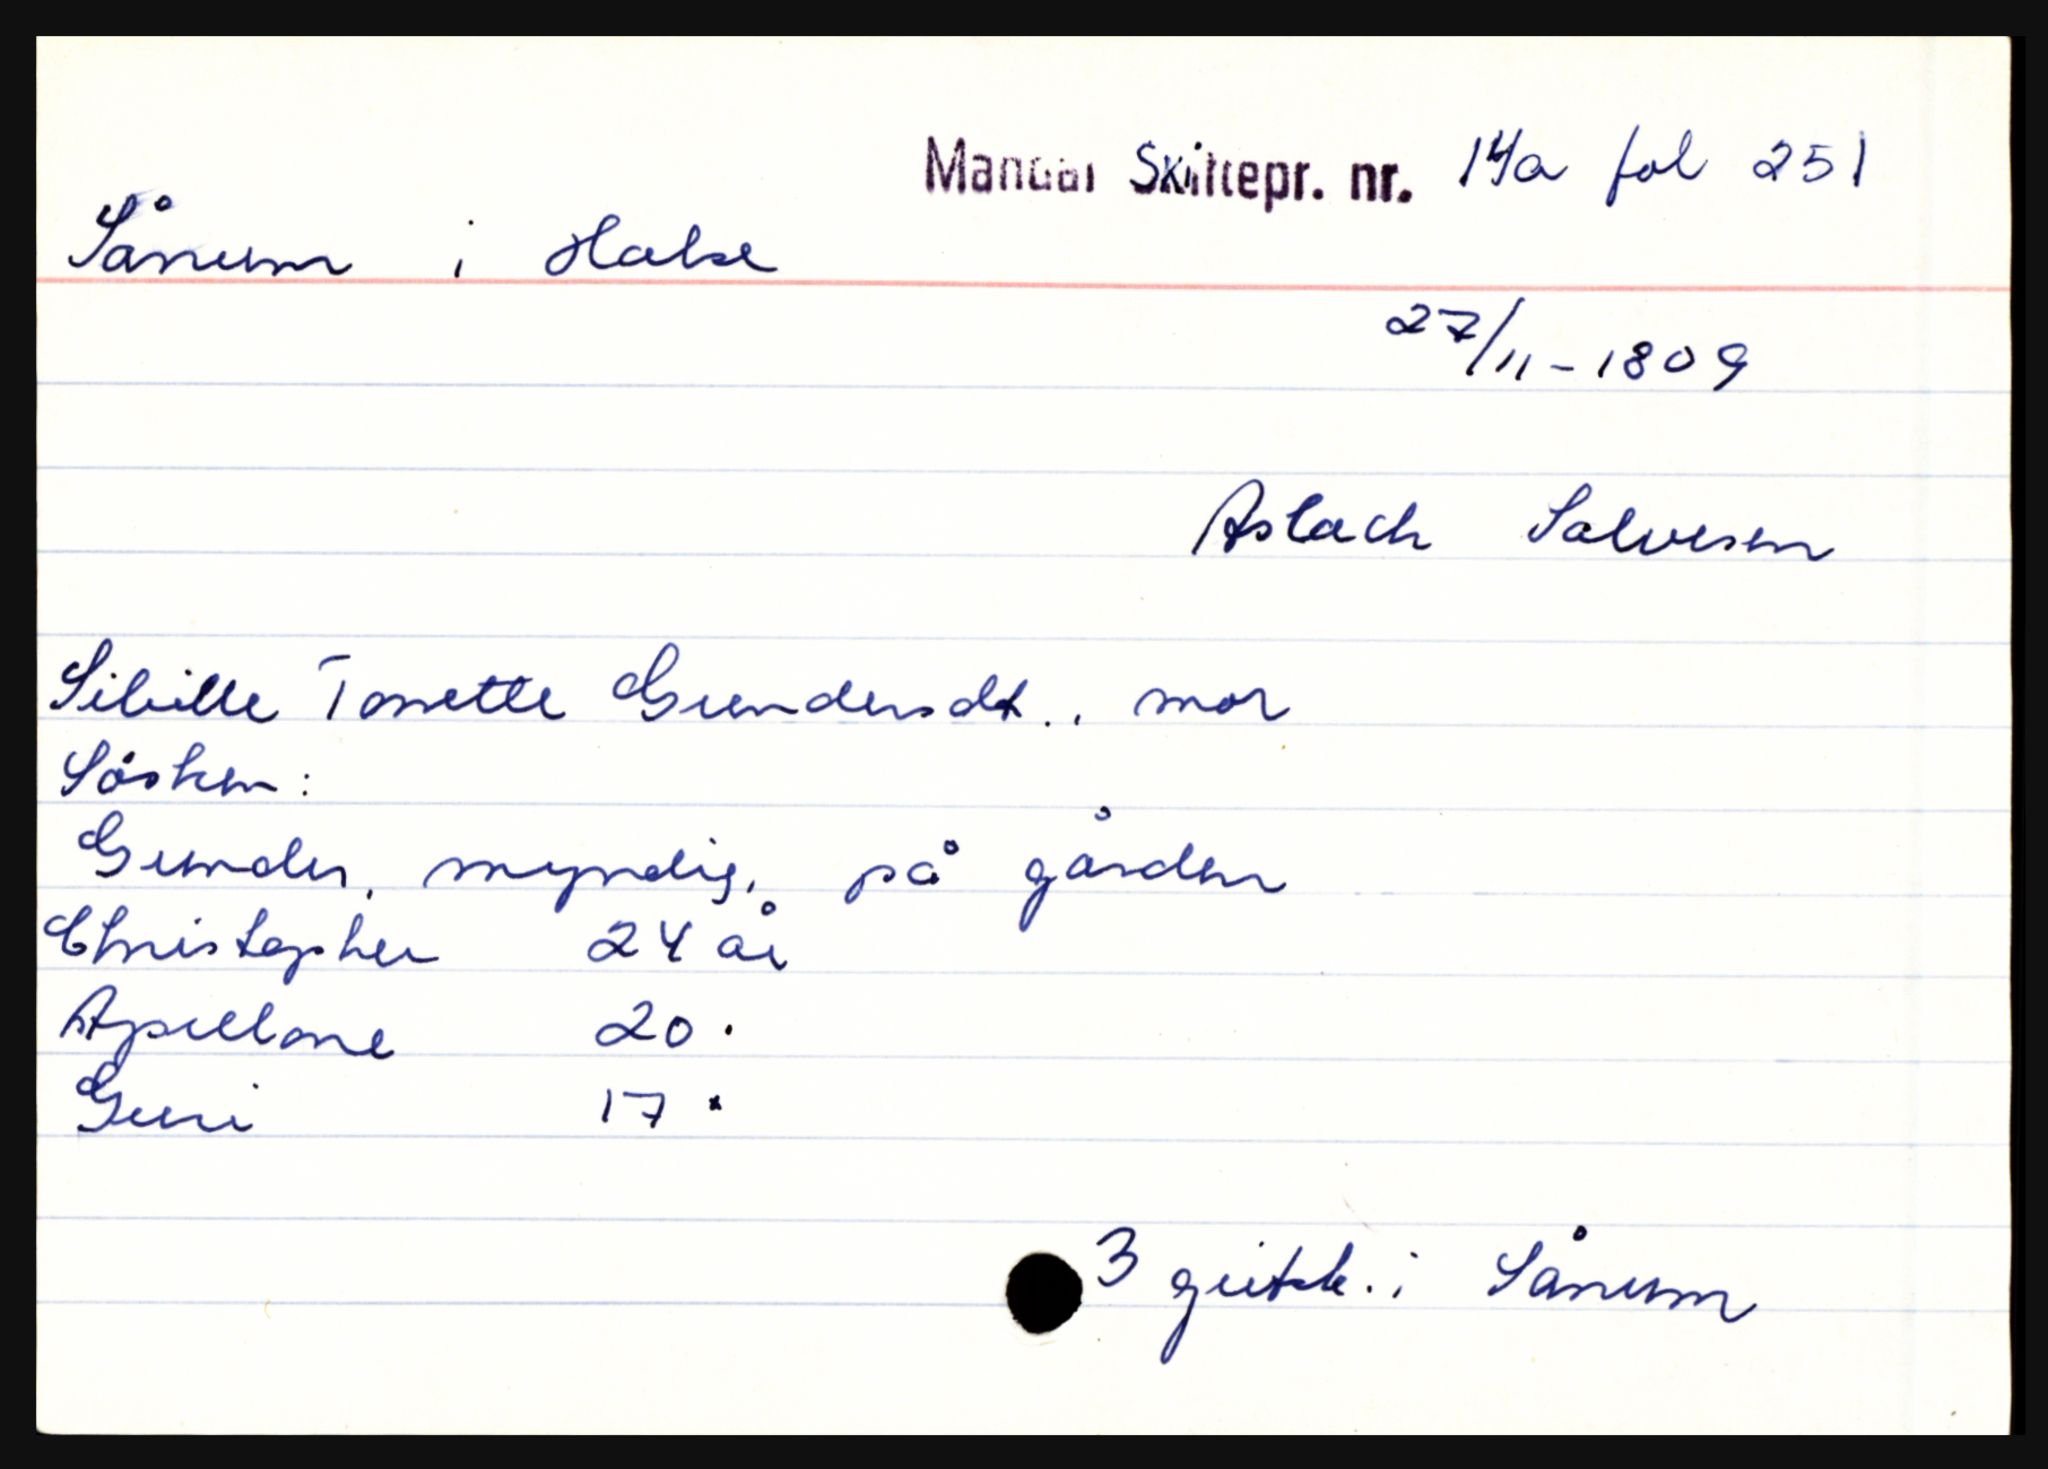 Mandal Skiftepr. nr. 14a fol 251
Sånum i Halse
27/11-1809
Aslach Salvesen
Sibille Tonette Gundersdt., mor
Søsken:
Gunder, myndig, på gården
Christopher 24 år
Apellone 20 "
Guri 17 "
3 gutsk. i Sånum